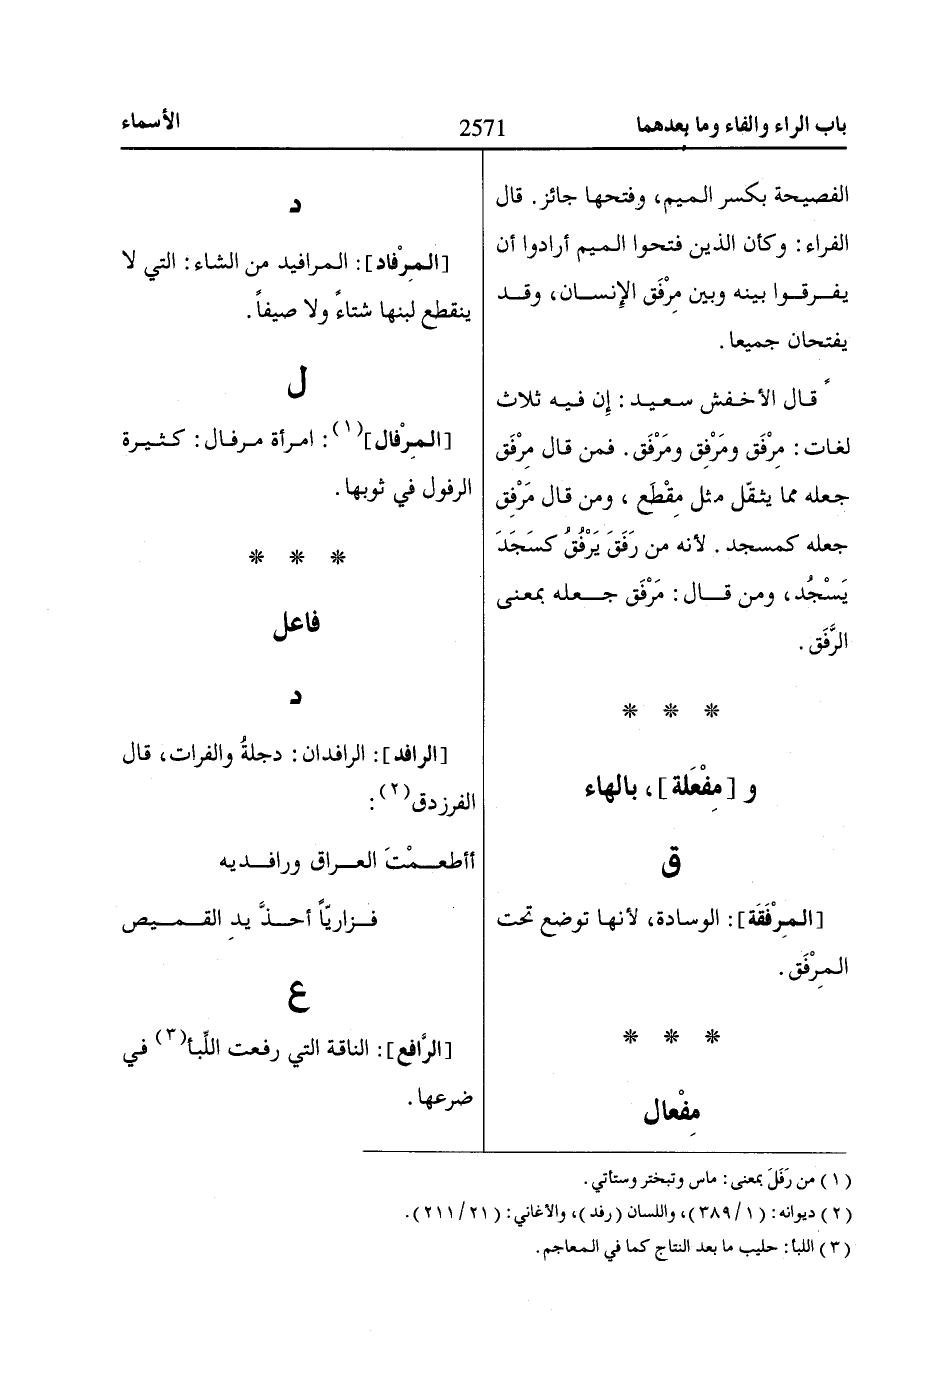 باب الراء والفاء وما بعدهما
2571
الأسماء
الفصيحة بكسر الميم، وفتحها جائز. قال
الفراء: وكأن الذين فتحوا الميم أرادوا أن
يفرقوا بينه وبين مِرْفَق الإنسان، وقد
يفتحان جميعا.
قال الأخفش سعيد: إن فيه ثلاث
لغات: مِرْفَق ومَرْفِق ومَرْفَق. فمن قال مِرْفَق
جعله مما يثقّل مثل مِقْطَع، ومن قال مَرْفِق
جعله كمسجد. لأنه من رَفَقَ يَرْفُقُ كسَجَدَ
يَسْجُد، ومن قال: مَرْفَق جعله بمعنى
الرَّفَق.
* * *
و [مِفْعَلة]، بالهاء
ق
[المِرْفَقَة]: الوسادة، لأنها توضع تحت
المِرْفَق.
* * *
مِفْعال
د
[المِرْفاد]: المرافيد من الشاء: التي لا
ينقطع لبنها شتاءً ولا صيفاً.
ل
[المِرْفال](١): امرأة مرفال: كثيرة
الرفول في ثوبها.
* * *
فاعل
د
[الرافد]: الرافدان: دجلةُ والفرات، قال
الفرزدق(٢):
أأطعمْتَ العراق ورافديه
فزاريّاً أحذَّ يدِ القميص
ع
[الرَّافع]: الناقة التي رفعت اللِّبأ(٣) في
ضرعها.
(١) من رَفَلَ بمعنى: ماس وتبختر وستأتي.
(٢) ديوانه: (٣٨٩/١)، واللسان (رفد)، والأغاني: (٢١١/٢١).
(٣) اللبأ: حليب ما بعد النتاج كما في المعاجم.